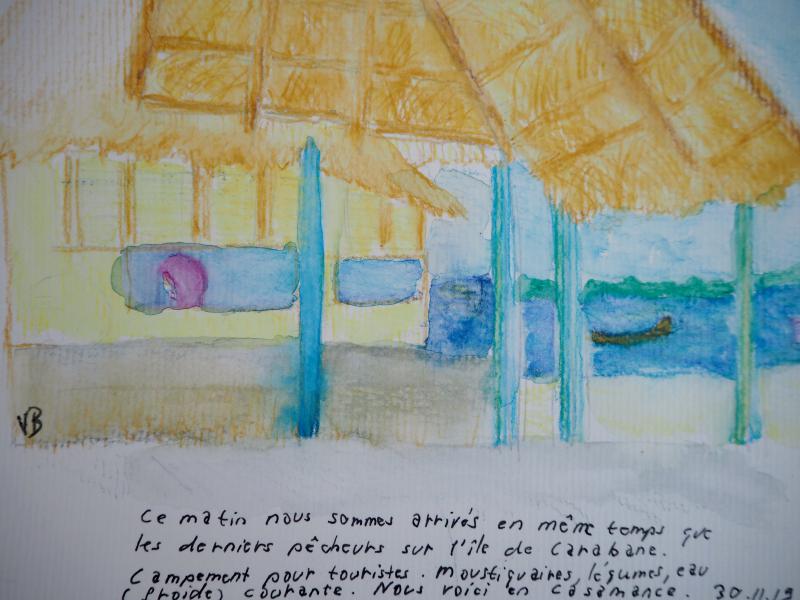 VB
Ce matin nous sommes arrivés en même temps que
les derniers pêcheurs sur l'île de Carabane.
Campement pour touristes. Moustiquaires, légumes, eau
(froide) courante. Nous voici en Casamance. 30.11.19